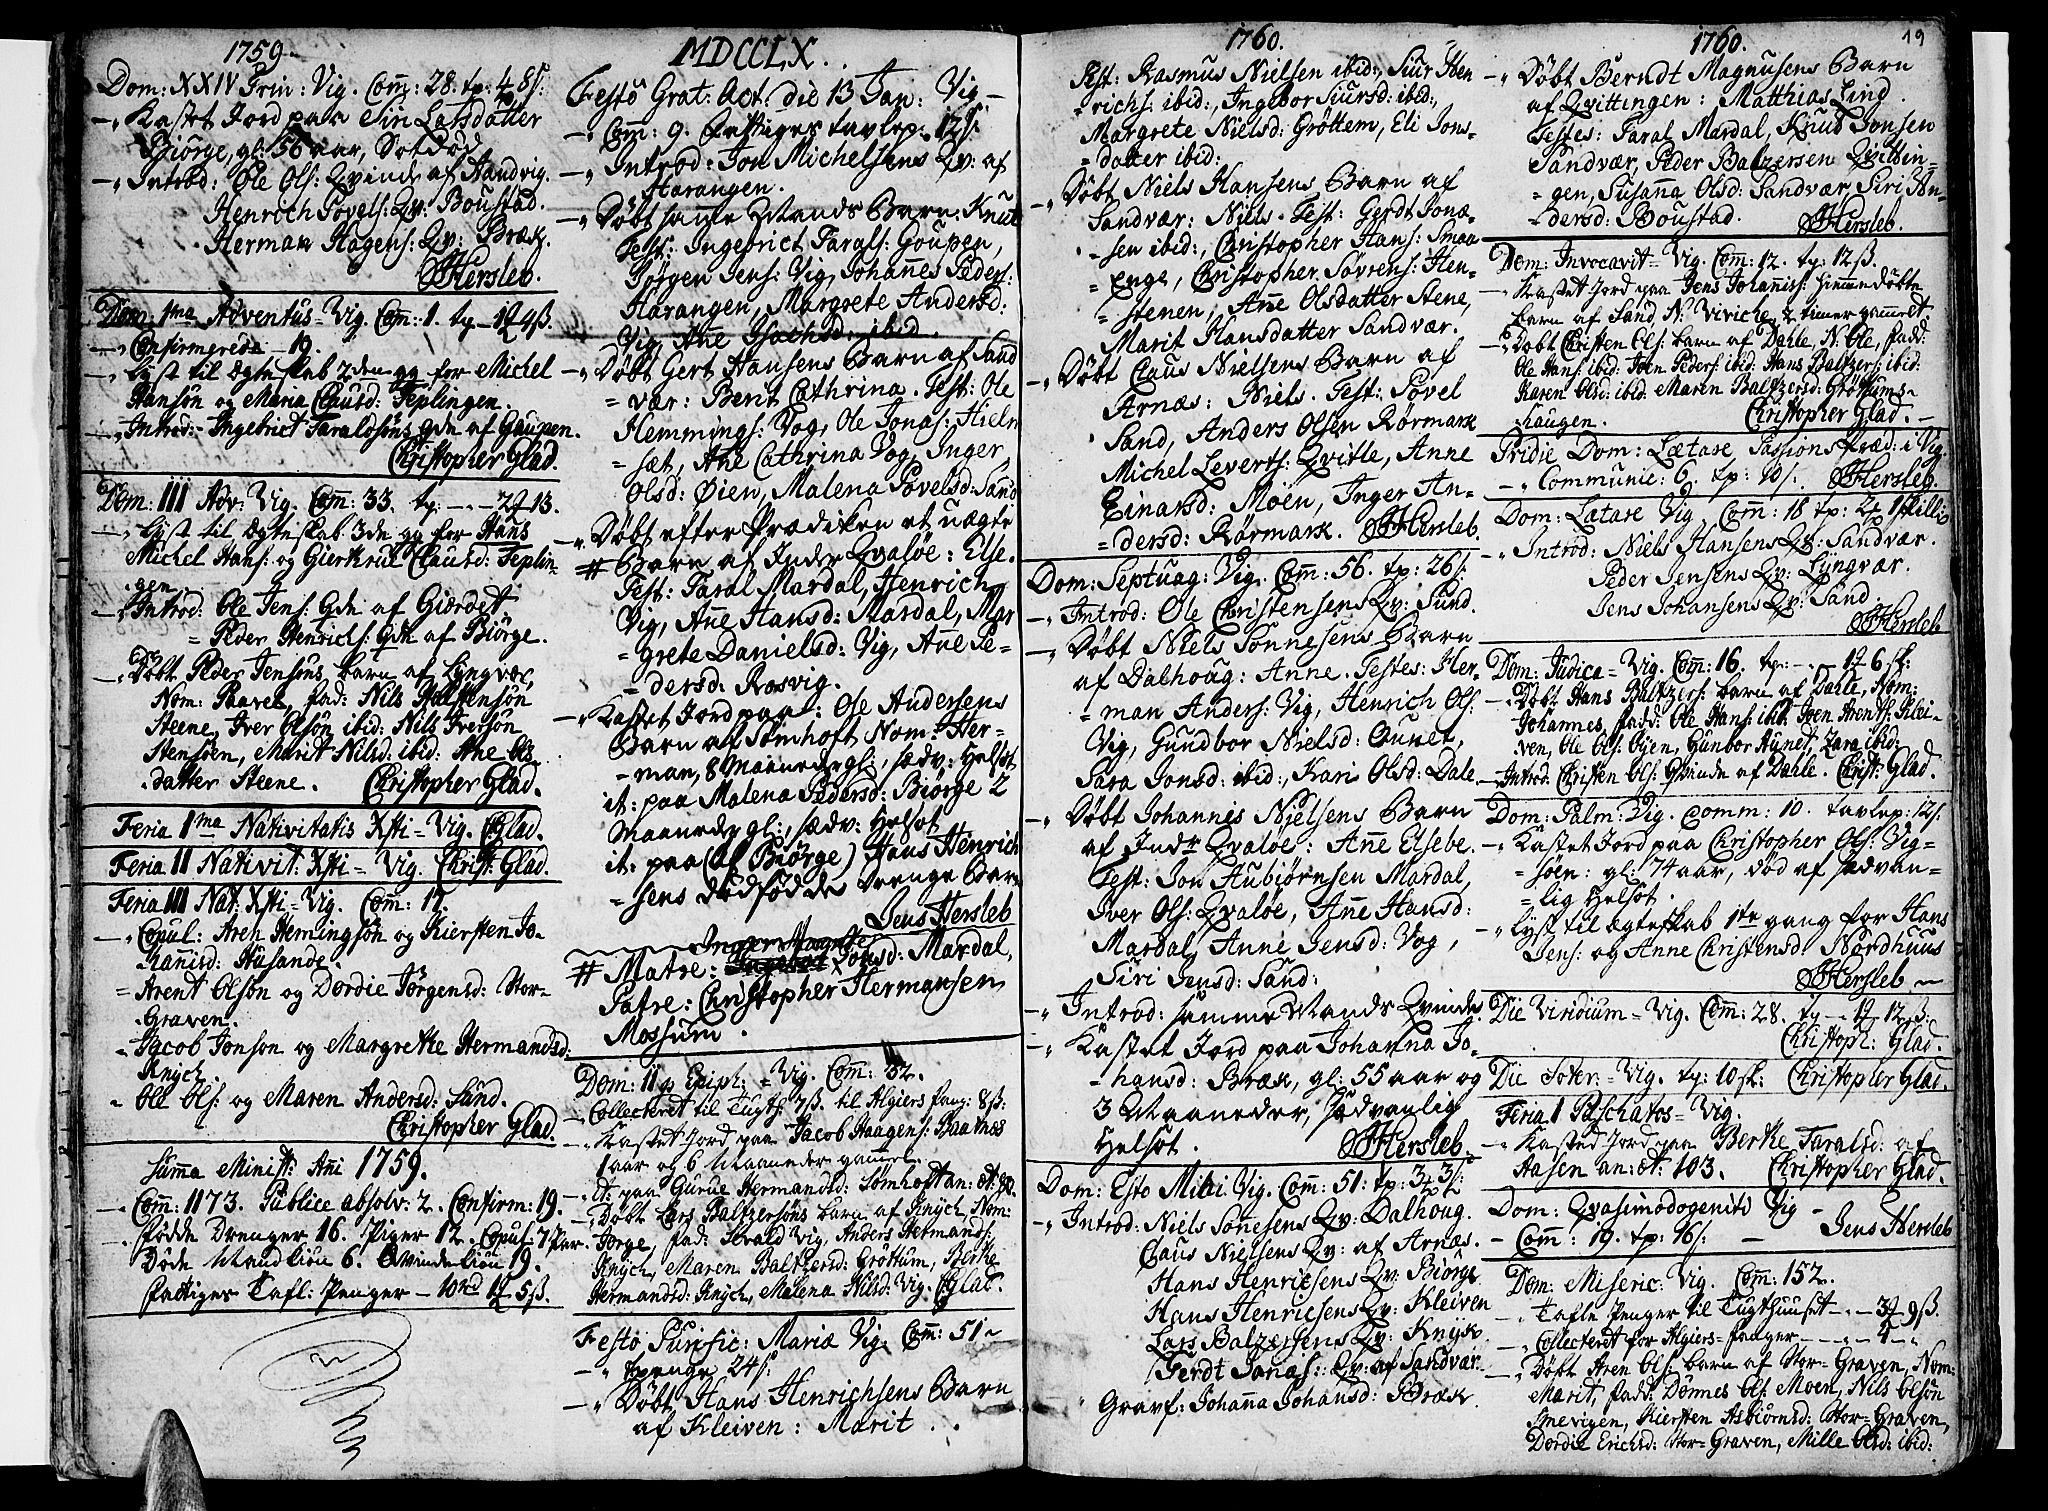 1759.
Dom: XXIV Trin: Vig. Com̅: 28. tp: 4 8ſ.
-" Kastet Jord paa Siri Larsdatter
Biørge, gl: 56 aar, Sotdød
-" Introd: Ole Ols: Qvinde af Handvig.
Henrich Povels: Qv: Boustad.
Herman Hagens: Qv: Bræk.
JHersleb.
Dom: 1ma Adventus = Vig. Com̅: 1. tp - 1 4ß
-" Confirmerede - 19.
-" Lyst til Ægteskab 2den gg for Michel
Hansøn og Maria Clausd: Teplingen.
-" Introd:- Ingebrict Taraldsøns Qde af Gaupen.
Christopher Glad.
Dom: III Adv: Vig. Com̅: 33. tp: - - - 2 13.
-" Lyst til Ægteskab 3de gg for Hans
Michel Hans: og Giertrud Clausd: Teplin-
gen
-" Introd: Ole Jens: Qde af Giærdet
= Peder Henrichs: Qde af Biørge.
-" Døbt Peder Jensøns barn af Lyngvær,
Nom: Paavel, fad: Nils Halstensøn
Steene, Iver Olsøn ibid: Nils Iversøn
Stensøen, Marit Nilsd: ibid: Ane Ols
datter Steene. Christopher Glad.
Feria 1ma Nativitatis Xsti = Vig. CGlad.
Feria II Nativit: Xsti = Vig. Christ: Glad.
Feria III Nat: Xsti = Vig. Com̅: 17.
-" Copul: Aren Hemingsøn og Kiersten Jo-
hanisd: Husande.
= Arent Olsøn og Dordie Jørgensd: Stor-
Graven.
- Jacob Jonsøn og Margrethe Hermandsd:
Knych.
- Ole Ols: og Maren Andersd: Sund.
Christopher Glad.
Sum̅a Minist: An̅i 1759.
-" Com̅: 1173. Publice absolv: 2. Confirm: 19.
-" Fødde Drenger 16. Piger 12. Copul: 7 Par.
Døde Mandkiøn 6. Qvindekiøn 19.
Fattiges Tafl: Penger - 10nd 1 5ß.
MDCCLX.
Festo Grat: Act: die 13 Jan: Vig -
-" Com̅: 9. Fattiges tavlep: 12ſ.
-" Introd: Jon Michelsens Qv: af
Harangen.
-" Døbt samme Mands Barn: Knut
Test: Ingebrict Tarals: Goupen,
Jørgen Jens: Vig, Johan̅es Peders:
Harangen, Margrete Andersd:
Vig, An̅e Isachsd: ibid.
-" Døbt Gert Hansens Barn af Sand
= vær: Berit Cathrina. Test: Ole
Flemmings: Vog, Ole Jonas: Hielm
= sæt, An̅e Cathrina Vog, Inger
Olsd: Øien, Malena Povelsd: Sand
-" Døbt efter Prædiken et uægte
# Barn af Inder Qvaløe: Else.
Test: Taral Mardal, Henrich
Vig, An̅e Hansd: Mardal, Mar
= grete Danielsd: Vig, An̅e Pe-
dersd: Rosvig.
-" Kastet Jord paa: Ole Andersens
Barn af Sømhoft Nom: Her-
- man, 8 Maaneder gl:, sædv: Helsot
it: paa Malena Pedersd: Biørge 2
Maaneder gl:, sædv: Helsot
it: paa (af Biørge) Hans Henrich
- sens dødfødde drenge Barn
Jens Hersleb
# Matre: Jonsd: Mardal,
Patre: Christopher Hermansen
Mossum.
Dom: II p Epiph: = Vig. Com̅: 32.
-" Collecteret til Tugth: 7ß. til Algiers fang: 8ß:
-" Kastet Jord paa Jacob Haagens: Baatnes
1 aar og 6 Maaneder gammel.
-" it: paa Gurue Hermandsd: Sømhoft an: æt: 80.
-" Døbt Lars Baltzersøns barn af Knych, Nom:
Jorge, fad: Sivald Vig, Anders Hermands:
Knych, Maren Baltzersd: Grøttum, Berthe
Hermandsd: Knych, Malena Nilsd: Vig. CGlad.
Festo Purific: Mariæ Vig. Com̅: 51 -
-" tpenge 24ſ.
-" Døbt Hans Henrichsens Barn
af Kleiven: Marit . .
1760.
Test: Rasmus Nielsen ibid:, Siur Hen
richs: ibid:, Ingebor Siursd: ibid:,
Margrete Nielsd: Grøttem, Eli Jons-
= datter ibid:
-" Døbt Niels Hansens Barn af
Sandvær: Niels. Test: Gerdt Jonæ-
- sen ibid:, Christopher Hans: Smaa
= Enge, Christopher Sørens: Hen-
= stenen, An̅e Olsdatter Stene,
Marit Hansdatter Sandvær.
-" Døbt Claus Nielsens Barn af
Arnæs: Niels. Test: Povel
Sand, Anders Olsen Rørmark
Michel Leverts: Qvitle, Anne
Einarsd: Moen, Inger An-
= dersd: Rørmark. JHersleb.
Dom: Septuag: Vig. Com̅: 56. tp: 26ſ.
-" Introd: Ole Christensens Qv: Sund.
-" Døbt Niels Sonnesens Barn
af Dalhoug: Anne. Testes: Her-
= man Anders: Vig, Henrich Ols:
Vig, Gundbor Nielsd: Ounet,
Sara Jonsd: ibid:, Kari Olsd: Dale
-" Døbt Johannis Nielsens Barn
af Indr Qvaløe: An̅e Elsebe.
Test: Jon Aubiørnsen Mardal,
Iver Ols: Qvaløe, An̅e Hansd:
Mardal, Anne Jensd: Vog,
Siri Jensd: Sand:
-" Introd: samme Mands Qvinde
-" Kastet Jord paa Johanna Jo-
- hansd: Bræk, gl: 55 aar og
3 Maaneder, sædvanlig
Helsot. JHersleb.
Dom: Esto Mihi Vig. Com̅: 51: tp: 3 3ſ:
-" Introd: Niels Sonnesens Qv: Dalhoug.
Claus Nielsens Qv: af Arnæs.
Hans Henricsens Qv: Biørge
Hans Henricsens Qv: Kleiven
Lars Balzersens Qv: Knykv.
Gerdt Jonæs: Qv: af Sandvær.
" Gravf: Johan̅a Johansd: Bræk.
1760. 19
-" Døbt Berndt Magnusens Barn
af Qvittingen: Matthias Lind.
Testes: Taral Mardal, Knud Jonsen
Sandvær, Peder Balzersen Qvittin-
= gen, Susan̅a Olsd: Sandvær, Siri An-
= dersd: Boustad. JHersleb.
Dom: Invocavit = Vig. Com̅: 12. tp: 12ß.
-" Kastet Jord paa Jens Johanis: Hiemmedøbte
barn af Sand N: Viviche, 2 timer gammel.
-" Døbt Christen Ols: barn af Dahle, N: Ole, fadd:
Ole Hans: ibid: Iven Peders: ibid: Hans Baltzers: ibid:
Karen Olsd: ibid: Maren Baltzersd: Grøttums-
Haugen. Christopher Glad. -
Pridie Dom: Lætare, Passions Præd: i Vig.
-" Communic: 6. tp: 10ſ. JHersleb.
Dom: Lætare Vig Com̅: 18 tp: 2 1 skilli
-" Introd: Niels Hansens Qv: Sandvær.
Peder Jensens Qv: Lyngvær.
Jens Johansens Qv: Sand.
JHersleb
Dom: Judica = Vig. Com̅: 16. tp: - - 1 6sk:
-" Døbt Hans Baltzers: barn af Dahle, Nom:
Johannes, fadd: Ole Hans: ibid: Iven Arents: Klei-
ven, Ole Ols: Øyen, Gunbor Aunet, Zara ibid:
-" Introd: Christen Ols: Qvinde af Dahle. Christ: Glad.
Dom: Palm: Vig. Comm: 10. tavlep: 12ſ.
-" Kastet Jord paa Christopher Ols: Vig-
= søen: gl: 74 aar, død af sædvan-
= lig Helsot.
-" Lyst til Ægteskab 1te gang for Hans
Jens: og Anne Christensd: Nordhuus
JHersleb -
Die Viridium = Vig. Com̅: 28. tp - 1 12ß:
Christoph: Glad.
Die Soter: = Vig. tp: 10sk: Christopher Glad.
Feria 1 Paschatos = Vig.
-" Kasted Jord paa Berthe Taralsd: af
Aasen an: æt: 103. Christopher Glad.
Dom: Qvasimodogeniti Vig -
- Com̅: 19. tp: 16ſ. - Jens Hersleb
Dom: Miseric: Vig. Com̅: 152.
-" Tafle Penger til Tugthuuset - - 3 9ß.
-" Collecteret for Algiers-fanger - - - 4 -
-" Døbt Aren Ols: barn af Stor-Graven, Nom:
Marit, fadd: Dønnes Ols: Moen, Nils Olsøn
Snevigen, Kiersten Asbiørnsd: Stor-Graven,
Dordie Erichsd: Stor-Graven, Mille Olsd: ibid: